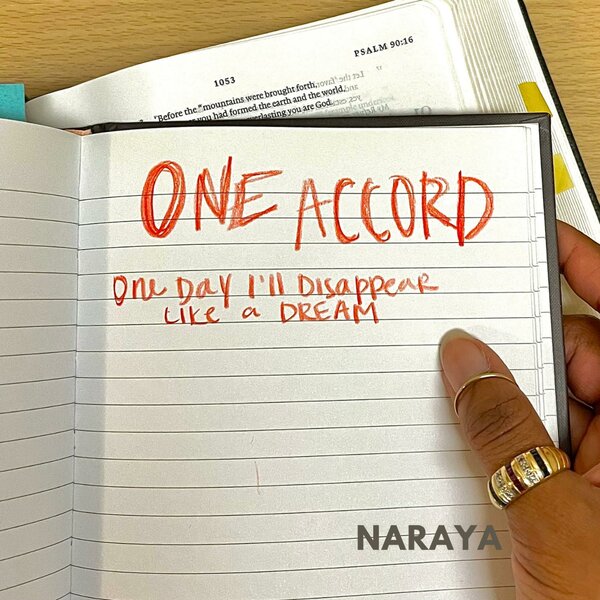 PSALM 90:16
1053
"Before the mountains were brought forth,
you had formed the earth and the world,
everlasting you are God.
Let the favor
ONE ACCORD
One Day I'll Disappear
Like a DREAM
NARAYA